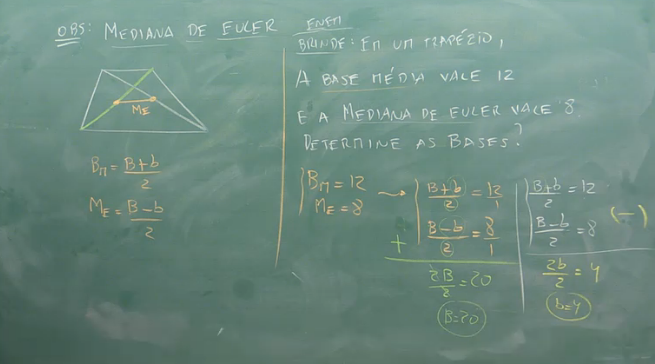 OBS: MEDIANA DE EULER
ME
BM = B+b/2
ME = B-b/2
ENEM
BRINDE: EM UM TRAPÉZIO,
A BASE MÉDIA VALE 12
E A MEDIANA DE EULER VALE 8.
DETERMINE AS BASES?
BM = 12
ME = 8
→
B+b/2 = 12/1
B-b/2 = 8/1
+
2B/2 = 20
B=20
B+b/2 = 12
B-b/2 = 8
(-)
2b/2 = 4
b=4